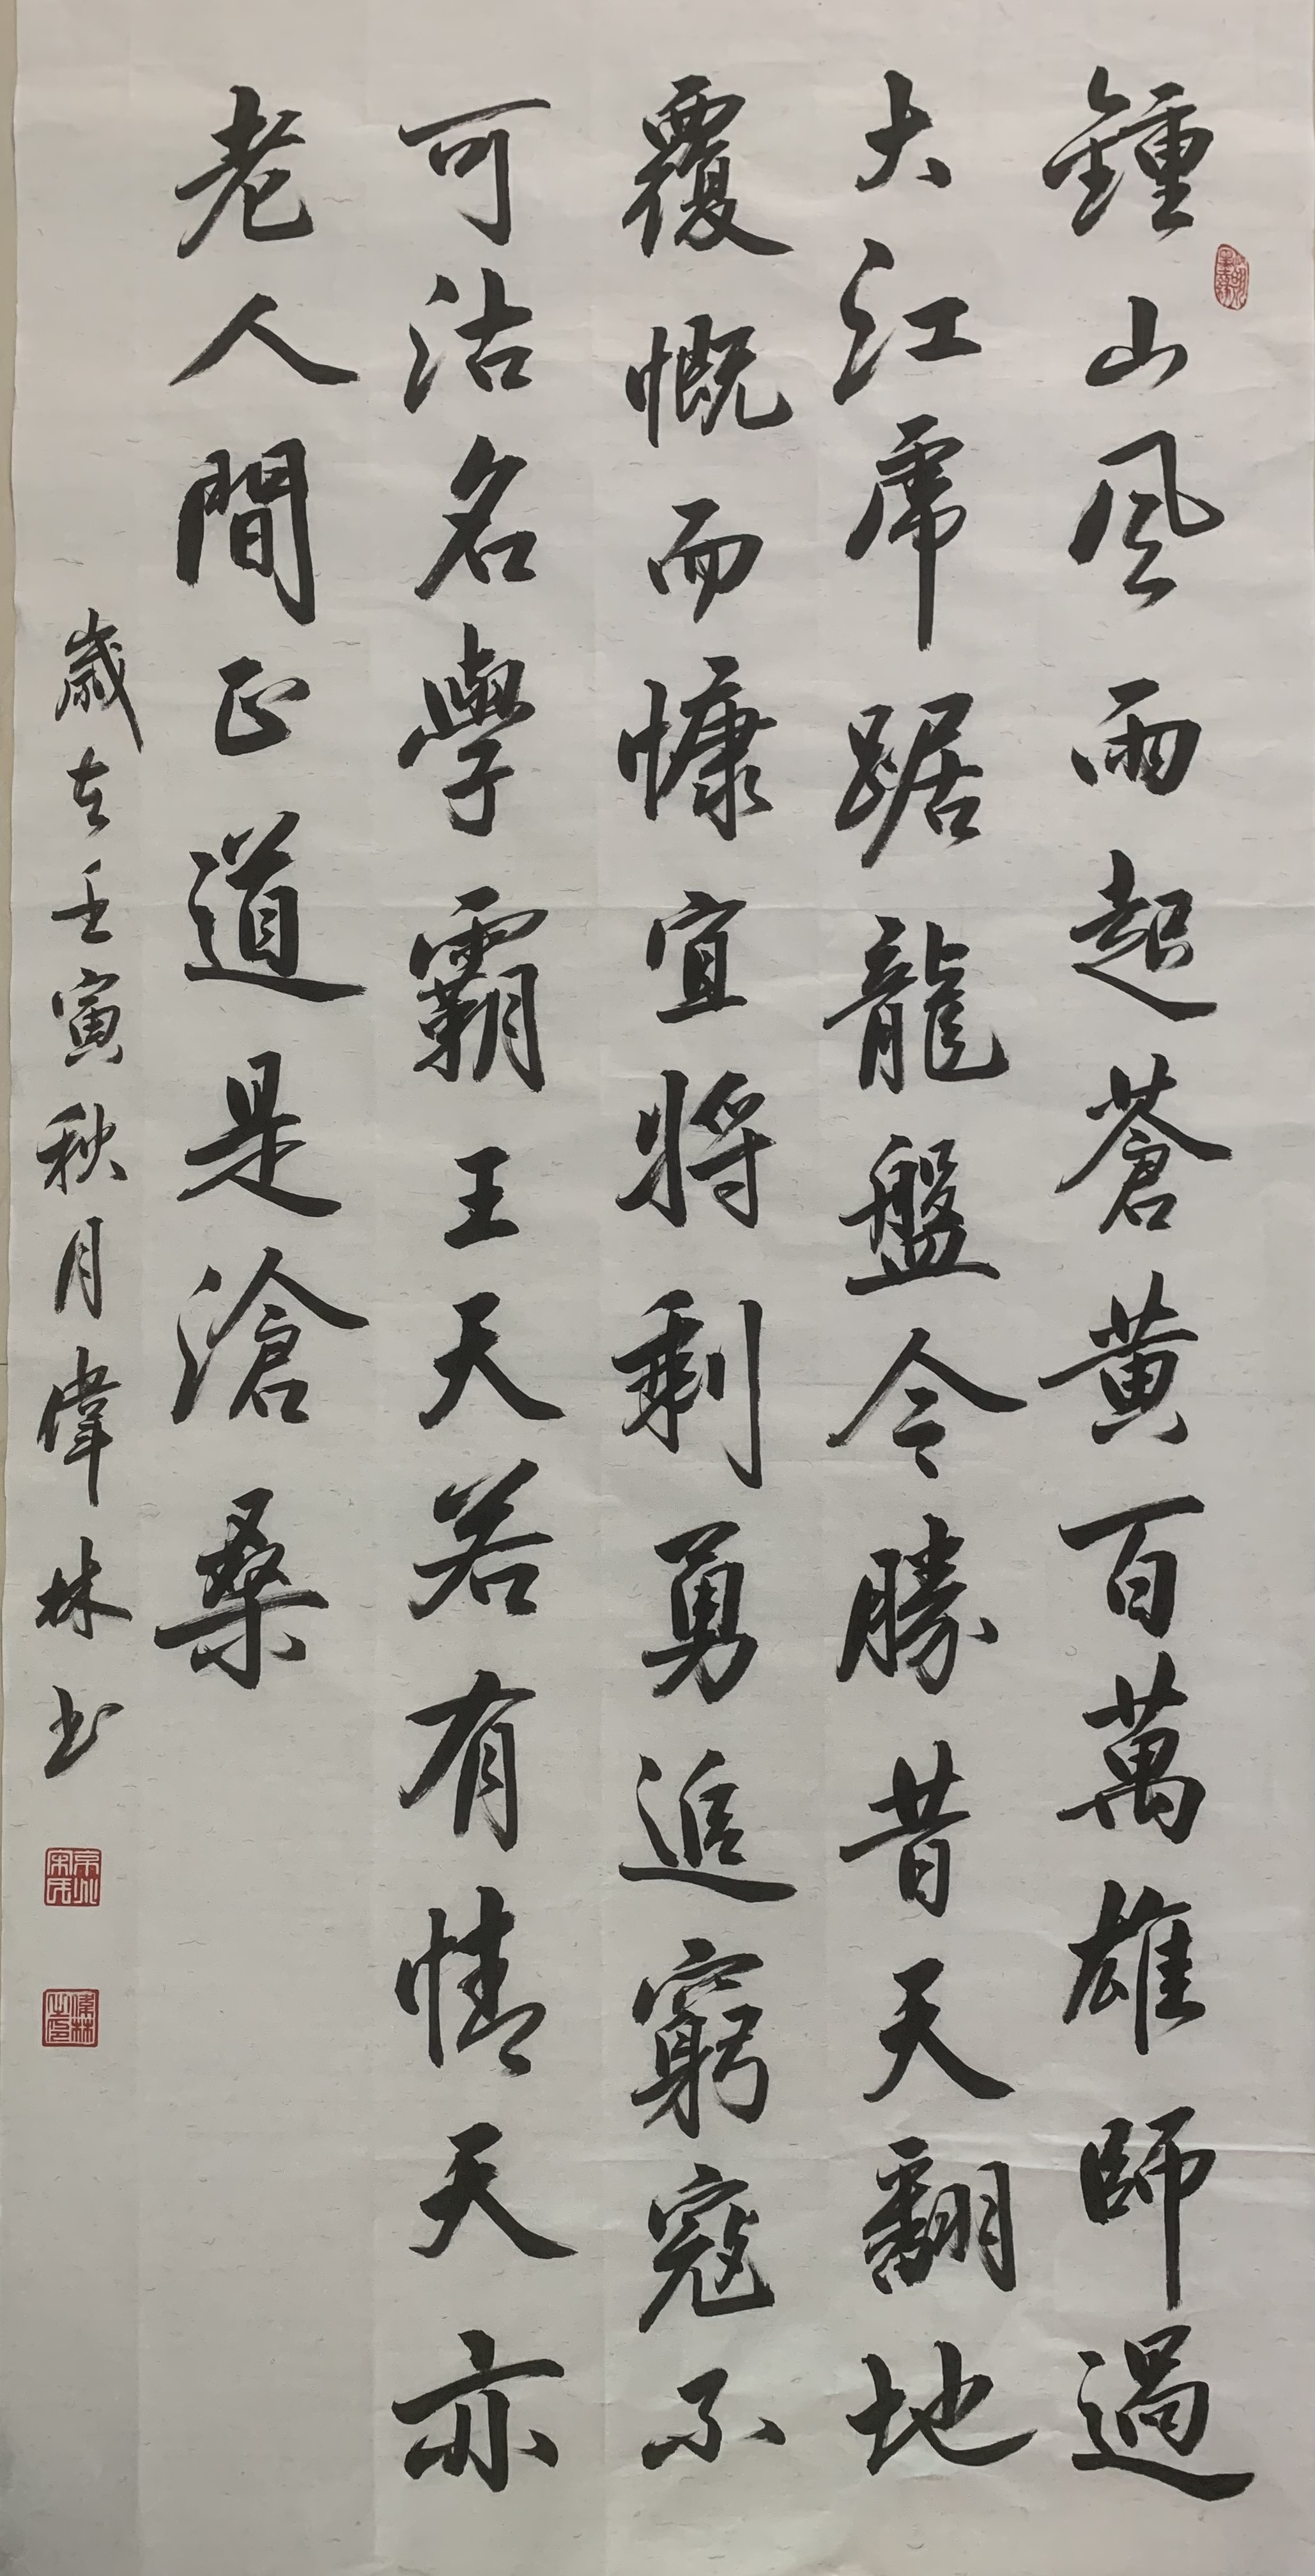 鍾山風雨起蒼黃百萬雄師過
大江虎踞龍盤今勝昔天翻地
覆慨而慷宜將剩勇追窮寇不
可沽名學霸王天若有情天亦
老人間正道是滄桑
歲在壬寅秋月偉林书